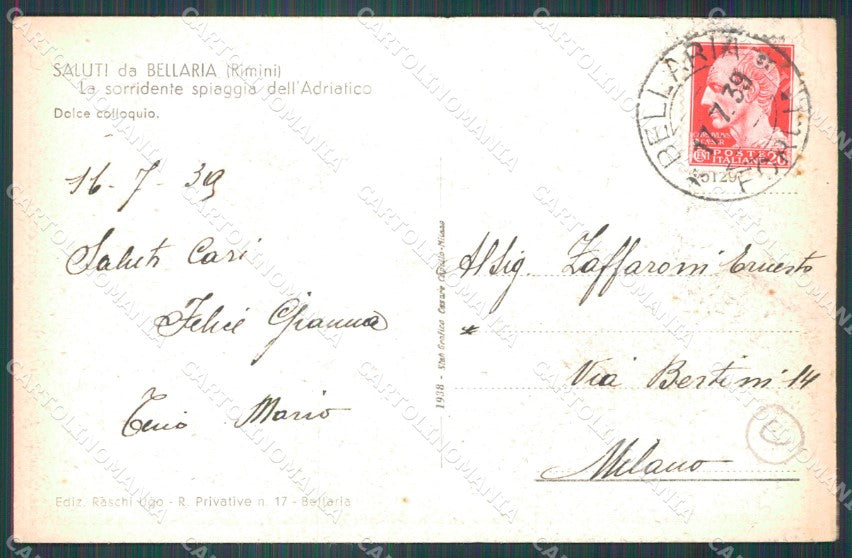 SALUTI da BELLARIA (Rimini)
La sorridente spiaggia dell'Adriatico
Dolce colloquio.
16-7-39
Saluti Cari
Felice Gianna
Mario
Ediz. Raschi Ugo - R. Privative n. 17 - Bellaria
1938 - Stab. Grafico Cesare Capello - Milano
BELLARIA
17.7.39
FORLI
POSTE
ITALIANE
Al Sig. Zaffaroni Ernesto
Via Bertini 14
Milano
CARTOLINOMANIA